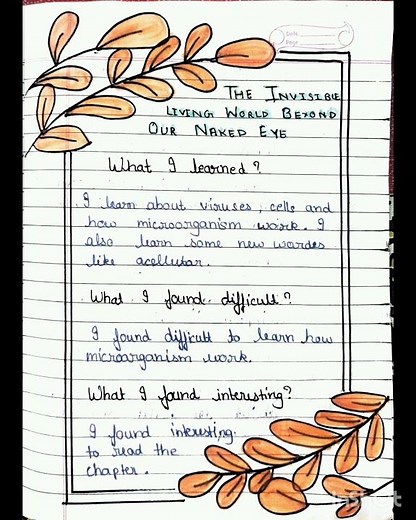 Date
Page
THE INVISIBLE
LIVING WORLD BEYOND
OUR NAKED EYE
What I learned?
I learn about viruses, cells and
how microorganism work. I
also learn some new wordes
like acellular.
What I found difficult?
I found difficult to learn how
microorganism work.
What I found interesting?
I found interesting
to read the
chapter.